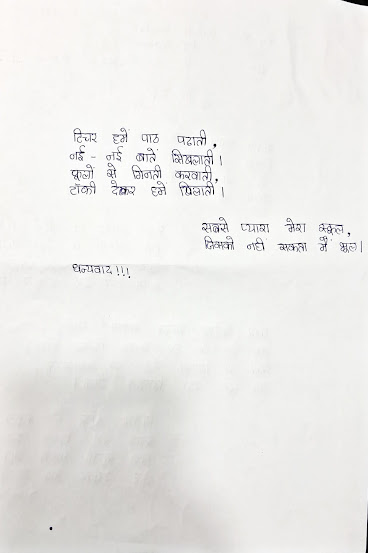 टिचर हमें पाठ पढाती,
नई - नई बातें सिखलाती।
फूलों से गिनती करवाती,
टॉफी देकर हमे खिलाती।
सबसे प्यारा मेरा स्कूल,
जिसको नहीं सकता मैं भूल।
धन्यवाद!!!